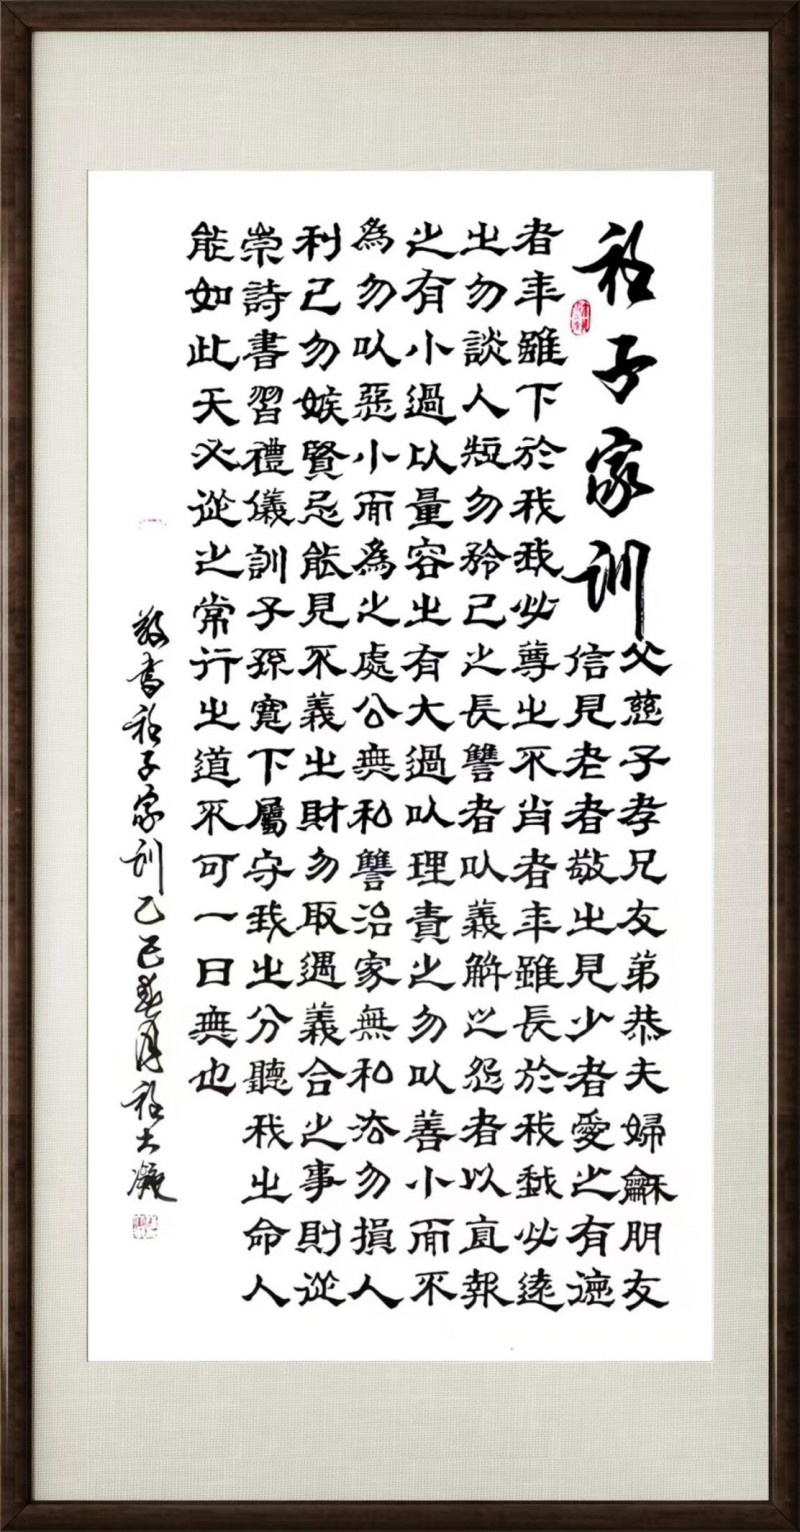 程子家訓
父慈子孝兄友弟恭夫婦龢朋友
信見老者敬之見少者愛之有德
者年雖下於我我必尊之不肖者年雖長於我我必遠
之勿談人短勿矜己之長讐者以義解之怨者以直報
之有小過以量容之有大過以理責之勿以善小而不
為勿以惡小而為之處公無私讐治家無私法勿損人
利己勿嫉賢忌能見不義之財勿取遇義合之事則從
崇詩書習禮儀訓子孫寬下屬守我之分聽我之命人
能如此天必從之常行之道不可一日無也
敬書程子家訓乙巳春月程